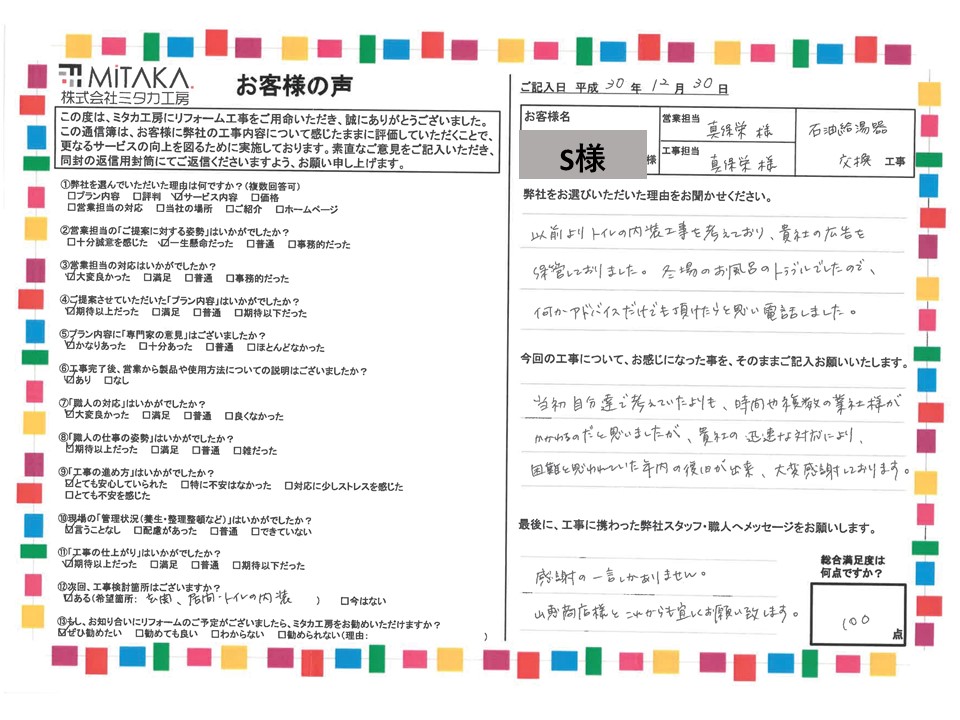 MiTAKA.
株式会社ミタカ工房
お客様の声
この度は、ミタカ工房にリフォーム工事をご用命いただき、誠にありがとうございました。
この通信簿は、お客様に弊社の工事内容について感じたままに評価していただくことで、
更なるサービスの向上を図るために実施しております。素直なご意見をご記入いただき、
同封の返信用封筒にてご返信くださいますよう、お願い申し上げます。
①弊社を選んでいただいた理由は何ですか？(複数回答可)
□プラン内容 □評判 ☑サービス内容 □価格
□営業担当の対応 □当社の場所 □ご紹介 □ホームページ
②営業担当の「ご提案に対する姿勢」はいかがでしたか？
□十分誠意を感じた ☑一生懸命だった □普通 □事務的だった
③営業担当の対応はいかがでしたか？
☑大変良かった □満足 □普通 □事務的だった
④ご提案させていただいた「プラン内容」はいかがでしたか？
☑期待以上だった □満足 □普通 □期待以下だった
⑤プラン内容に「専門家の意見」はございましたか？
☑かなりあった □十分あった □普通 □ほとんどなかった
⑥工事完了後、営業から製品や使用方法についての説明はございましたか？
☑あり □なし
⑦「職人の対応」はいかがでしたか？
☑大変良かった □満足 □普通 □良くなかった
⑧「職人の仕事の姿勢」はいかがでしたか？
☑期待以上だった □満足 □普通 □雑だった
⑨「工事の進め方」はいかがでしたか？
☑とても安心していられた □特に不安はなかった □対応に少しストレスを感じた
□とても不安を感じた
⑩現場の「管理状況(養生・整理整頓など)」はいかがでしたか？
☑言うことなし □配慮があった □普通 □できていない
⑪「工事の仕上がり」はいかがでしたか？
☑期待以上だった □満足 □普通 □期待以下だった
⑫次回、工事検討箇所はございますか？
☑ある(希望箇所: 玄関、居間・トイレの内装 ) □今はない
⑬もし、お知り合いにリフォームのご予定がございましたら、ミタカ工房をお勧めいただけますか？
☑ぜひ勧めたい □勧めても良い □わからない □勧められない(理由: )
ご記入日 平成 30 年 12 月 30 日
お客様名
S様
様
営業担当
真保栄 様
工事担当
真保栄 様
石油給湯器
交換 工事
弊社をお選びいただいた理由をお聞かせください。
以前よりトイレの内装工事を考えており、貴社の広告を
しておりました。冬場のお風呂のトラブルでしたので、
何かアドバイスだけでも頂けたらと思い電話しました。
今回の工事について、お感じになった事を、そのままご記入お願いいたします。
当初自分達で考えていたよりも、時間や複数の業社様が
かかわるのだと思いましたが、貴社の迅速な対応により、
困難と思われていた年内の復旧が出来、大変感謝しております。
最後に、工事に携わった弊社スタッフ・職人へメッセージをお願いします。
感謝の一言しかありません。
商店様とこれからも宜しくお願い致します。
総合満足度は
何点ですか？
100
点